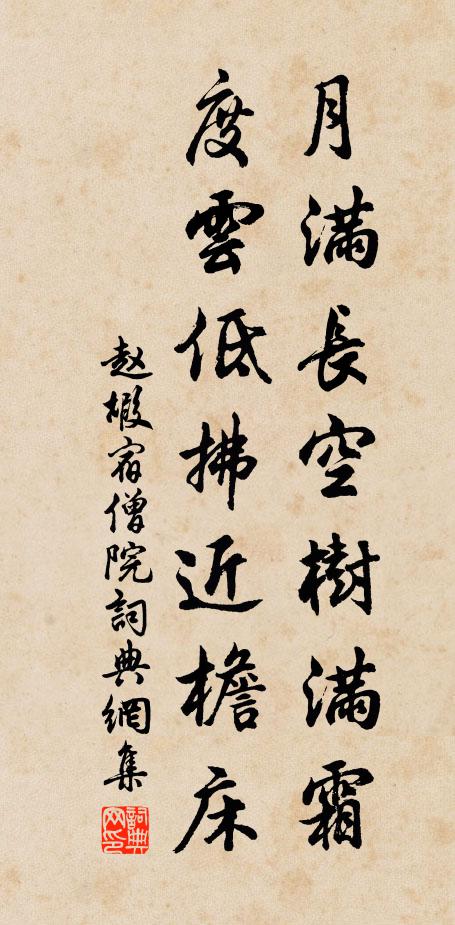 月滿長空樹滿霜
度雲低拂近檐床
赵嘏宿僧院詞典網集
詞典网印